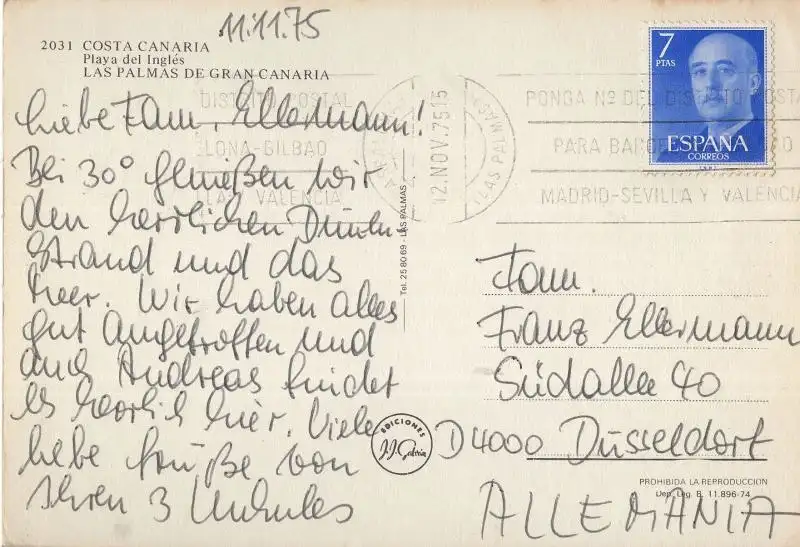 11.11.75
2031 COSTA CANARIA
Playa del Inglés
LAS PALMAS DE GRAN CANARIA
Liebe Fam. Ellermann!
Bei 30° genießen wir
den herrlichen Dünen-
strand und das
Meer. Wir haben alles
gut angetroffen und
auch Andreas findet
es herrlich hier. Viele
liebe Grüße von
Ihren 3
DISTRITO POSTAL
LONA-BILBAO
LAS VALENCIA
12.NOV.75 15
LAS PALMAS
PONGA Nº DEL DISTRITO POSTA
PARA BARCE
MADRID-SEVILLA Y VALENCIA
7
PTAS
ESPAÑA
CORREOS
Tel. 25 80 69 - LAS PALMAS
Fam.
Franz Ellermann
Südallee 40
D 4000 Düsseldorf
ALLEMANIA
EDICIONES
PROHIBIDA LA REPRODUCCION
Dep. Leg. B. 11.896-74